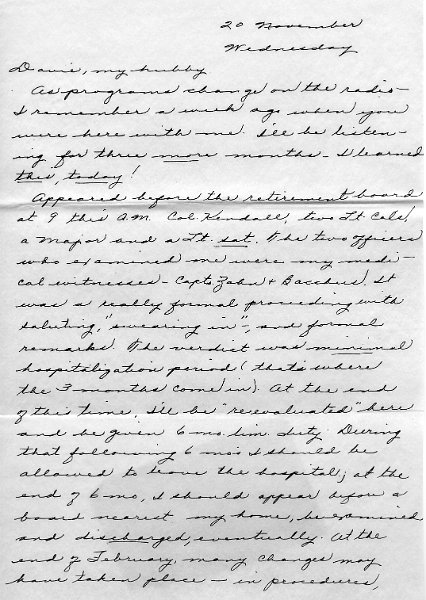 20 November
Wednesday
Davie, my hubby
As programs change on the radio -
I remember a week ago when you
were here with me. I'll be listen-
ing for three more months - I learned
this, today!
Appeared before the retirement board
at 9 this A.M. Col. Kendall, two Lt Cols!
a Major and a Lt. sat. The two officers
who examined me were my medi-
cal witnesses - Capts Zahn & Bacchus! It
was a really formal proceeding with
saluting, "swearing in", and formal
remarks! The verdict was minimal
hospitalization period (that's where
the 3 months come in). At the end
of the time, I'll be "reevaluated" here
and be given 6 mo. lim. duty. During
that following 6 mos I should be
allowed to leave the hospital; at the
end of 6 mo, I should appear before a
board nearest my home, be examined
and discharged, eventually. At the
end of February, many changes may
have taken place - in procedures,